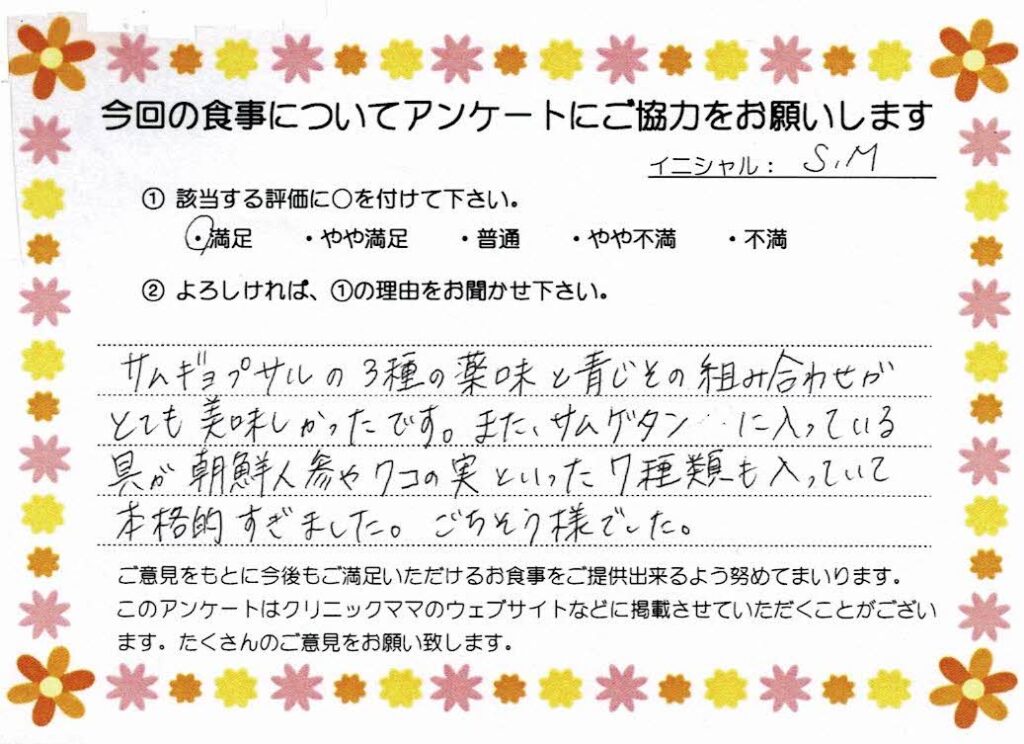 今回の食事についてアンケートにご協力をお願いします
イニシャル： S.M
① 該当する評価に○を付けて下さい。
・満足 ・やや満足 ・普通 ・やや不満 ・不満
② よろしければ、①の理由をお聞かせ下さい。
サムギョプサルの3種の薬味と青じその組み合わせが
とても美味しかったです。また、サムゲタンに入っている
具が朝鮮人参やクコの実といった7種類も入っていて
本格的すぎました。ごちそう様でした。
ご意見をもとに今後もご満足いただけるお食事をご提供出来るよう努めてまいります。
このアンケートはクリニックママのウェブサイトなどに掲載させていただくことがござい
ます。たくさんのご意見をお願い致します。